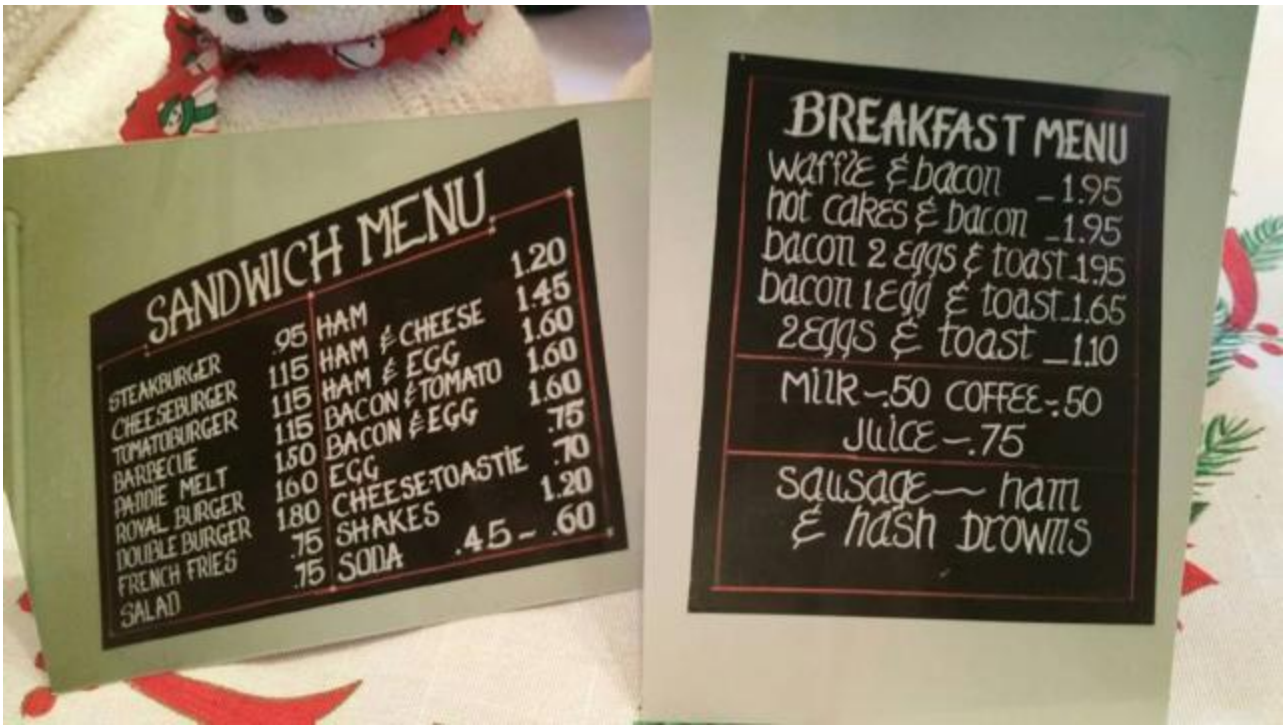 SANDWICH MENU
STEAKBURGER .95 HAM 1.20
CHEESEBURGER 1.15 HAM & CHEESE 1.45
TOMATOBURGER 1.15 HAM & EGG 1.60
BARBECUE 1.15 BACON & TOMATO 1.60
PADDIE MELT 1.50 BACON & EGG 1.60
ROYAL BURGER 1.60 EGG .75
DOUBLE BURGER 1.80 CHEESE-TOASTIE .70
FRENCH FRIES .75 SHAKES 1.20
SALAD .75 SODA .45 - .60
BREAKFAST MENU
waffle & bacon _ 1.95
hot cakes & bacon _ 1.95
bacon 2 eggs & toast _ 1.95
bacon 1 egg & toast _ 1.65
2 eggs & toast _ 1.10
Milk - .50 COFFEE - .50
Juice - .75
sausage — ham
& hash browns